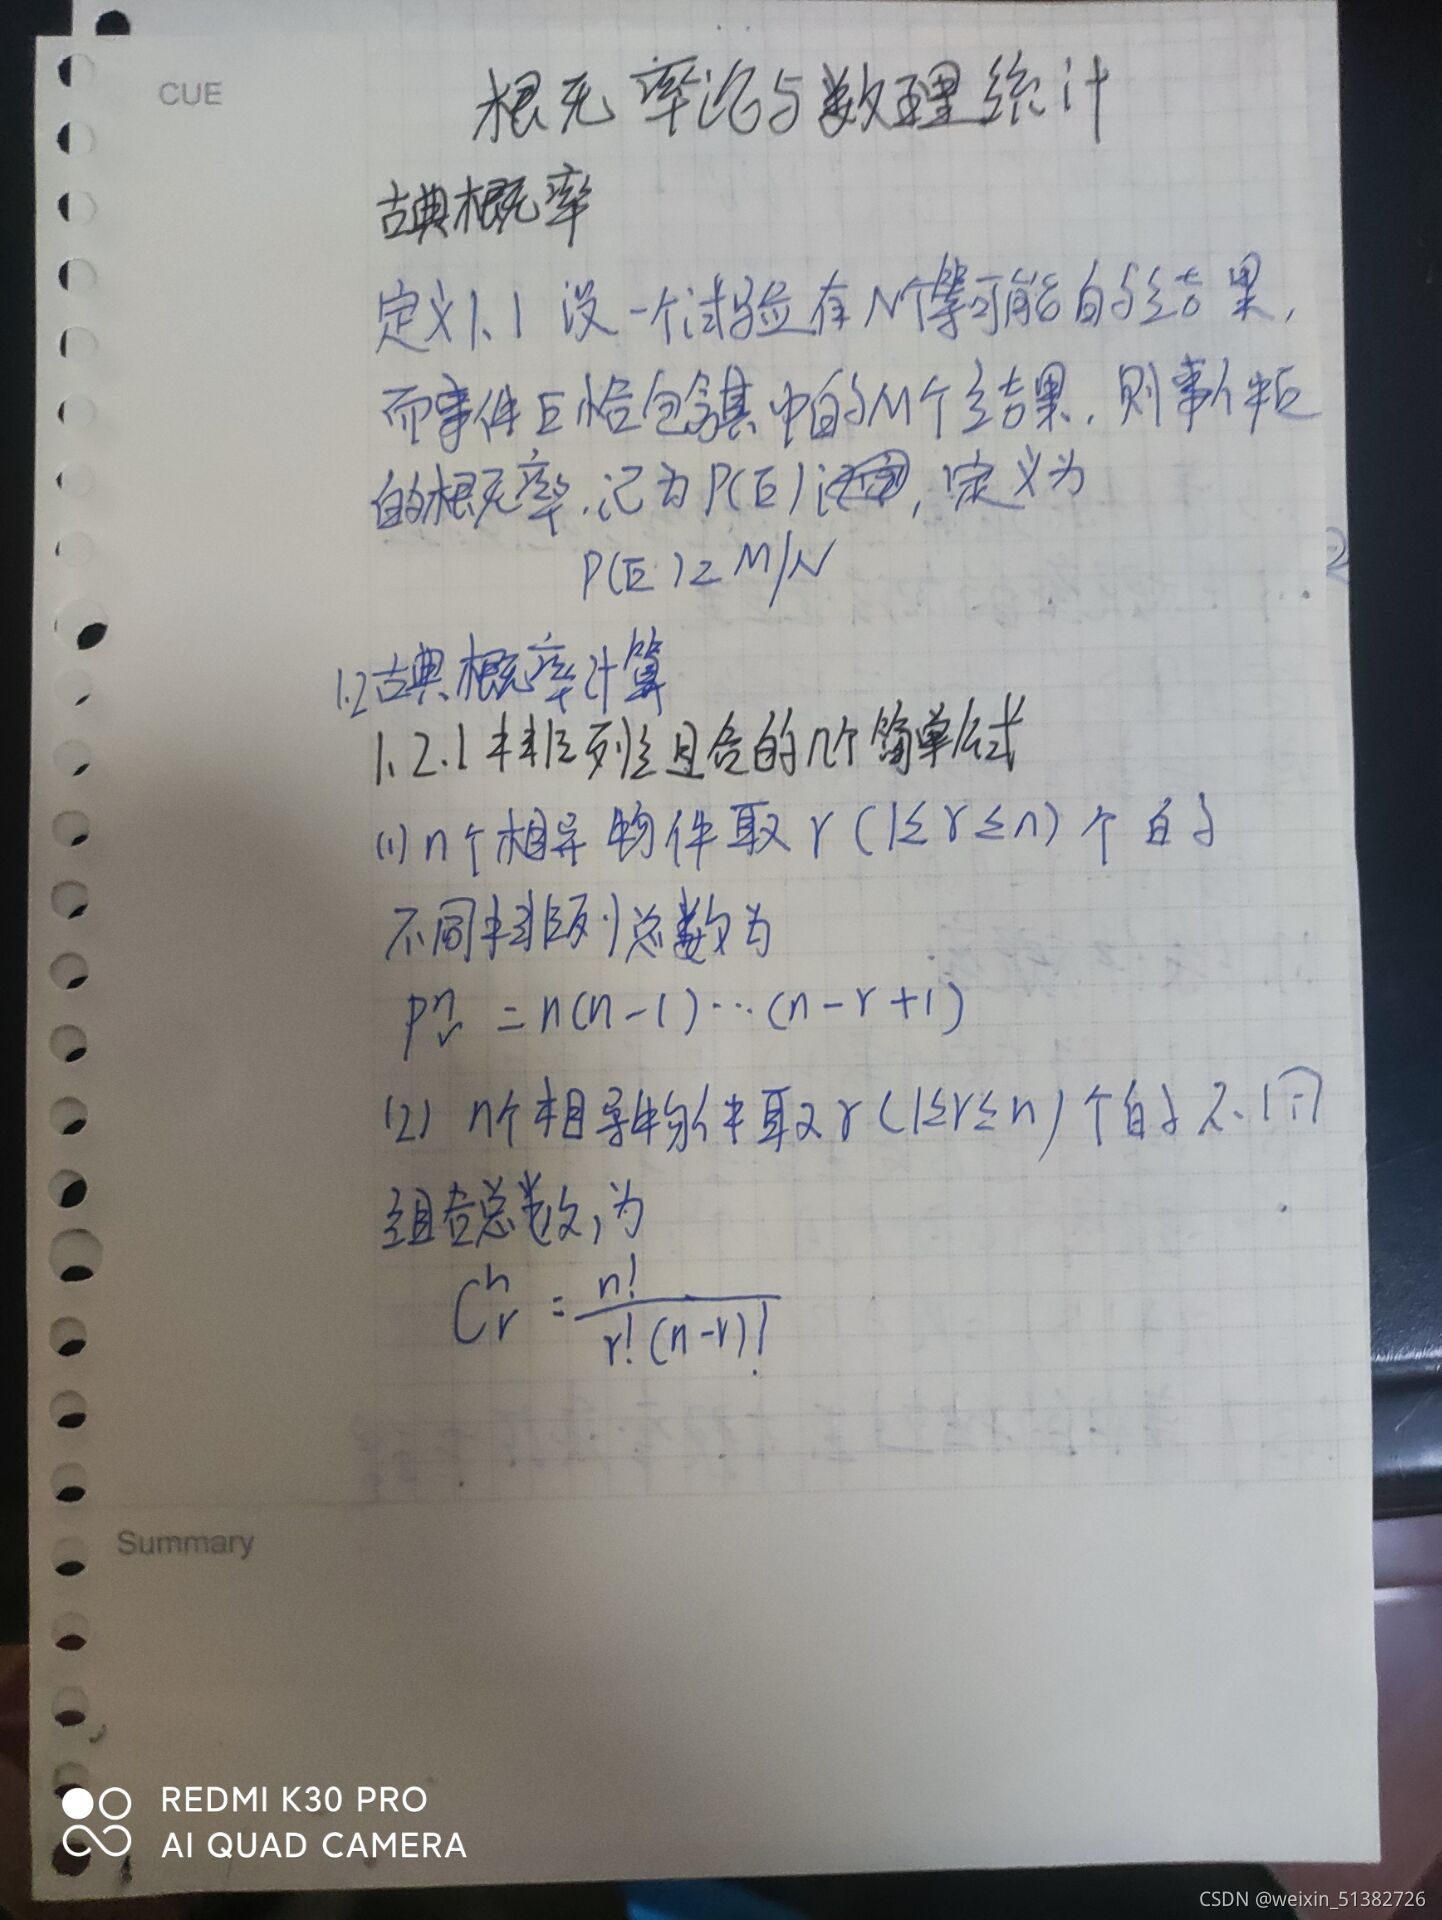 CUE
概率论与数理统计
古典概率
定义1.1 设一个试验有N个等可能的结果,
而事件E恰包含其中的M个结果.则事件E
的概率.记为P(E) ,定义为
P(E)=M/N
1.2古典概率计算
1.2.1排列组合的几个简单公式
(1)n个相异物件取r(1≤r≤n)个的
不同排列总数为
P^n_r =n(n-1)…(n-r+1)
(2) n个相异物件取r(1≤r≤n)个的不同
组合总数,为
C^n_r = n!/r!(n-r)!
Summary
REDMI K30 PRO
AI QUAD CAMERA
CSDN @weixin_51382726